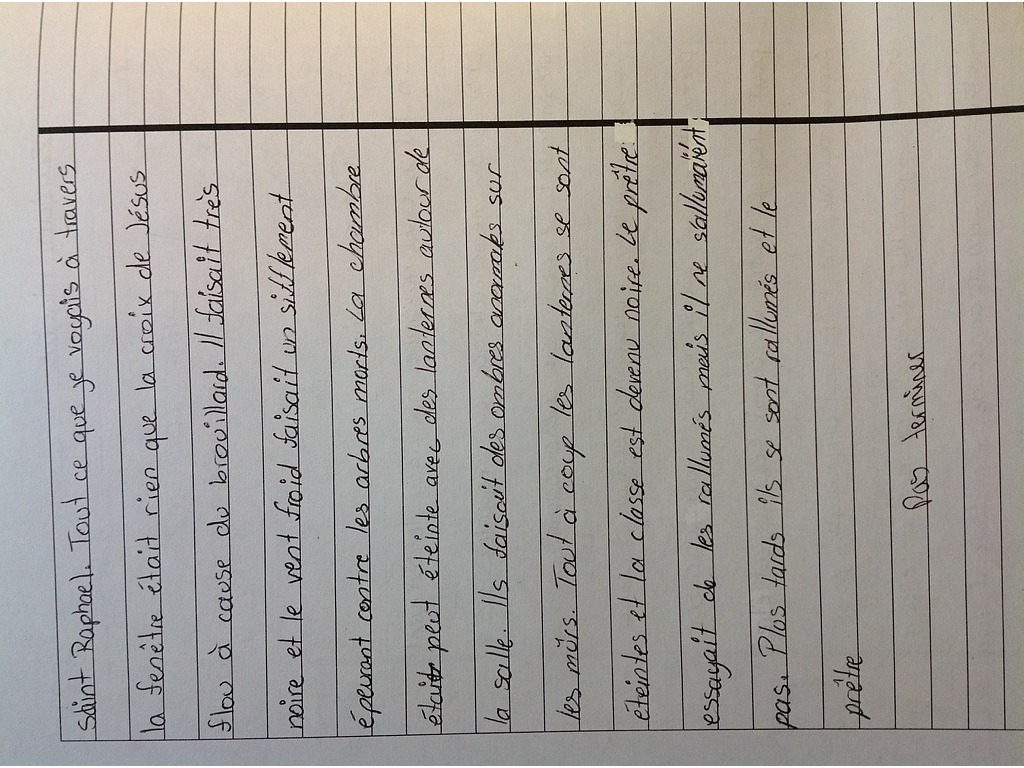 Saint Raphael. Tout ce que je voyais à travers
la fenêtre était rien que la croix de Jésus
flou à cause du brouillard. Il faisait très
noire et le vent froid faisait un sifflement
épeurant contre les arbres morts. La chambre
était peut éteinte avec des lanternes autour de
la salle. Ils faisait des ombres anormales sur
les mûrs. Tout à coup les lanternes se sont
éteintes et la classe est devenu noire. Le prêtre
essayait de les rallumés mais il ne s'allumaient
pas. Plus tards ils se sont rallumés et le
prêtre
Pas terminer